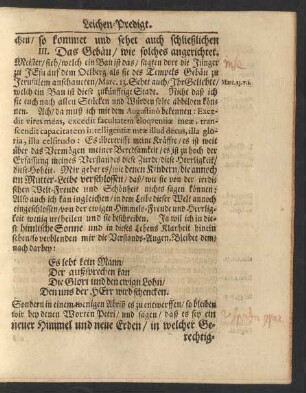 Leichen-Predigt.
chen/ so kommet und sehet auch schließlichen
III. Das Gebäu/ wie solches angerichtet.
Meister/ sieh/ welch ein Bau ist das/ sagten dort die Jünger
zu JEsu auf dem Oelberg/ als sie des Tempels Gebäu zu
Jerusalem anschauten/ Marc. 13. Sehet auch/ Ihr Geliebte/
Marc. 13. v. 1.
welch ein Bau ist diese zukünfftige Stadt. Nicht daß ich
sie euch nach allen Stücken und Würden solte abbilden kön-
nen. Ach/ da muß ich mit dem Augustino bekennen: Exce-
dit vires meas, excedit facultatem eloquentiæ meæ, trans-
cendit capacitatem intelligentiæ meæ illud decus, illa glo-
ria, illa celsitudo: Es übertrifft meine Kräffte/ es ist weit
über das Vermögen meiner Beredtsamkeit/ es ist zu hoch der
Erfassung meines Verstandes diese Zierde/ diese Herrligkeit/
diese Hoheit. Mir gehet es/ wie denen Kindern/ die annoch
im Mutter-Leibe verschlossen/ daß/ wie sie von der irrdi-
schen Welt-Freude und Schönheit nichts sagen können:
Also auch ich kan ingleichen/ in dem Leibe dieser Welt annoch
eingeschlossen/ von der ewigen Himmels-Freude und Herrlig-
keit wenig urtheilen und sie beschreiben. Ja will ich in die-
se himmlische Sonne und in dieses Lebens Klarheit hinein
sehen/ so verblenden mir die Verstands-Augen. Bleibet dem-
nach darbey:
Es lebt kein Mann/
Der aussprechen kan
Die Glori und den ewigen Lohn/
Den uns der HErr wird schencken.
Sondern in einem wenigen Abriß es zu entwerffen/ so bleiben
wir bey denen Worten Petri/ und sagen/ daß es sey ein
neuer Himmel und neue Erden/ in welcher Ge-
rechtig-